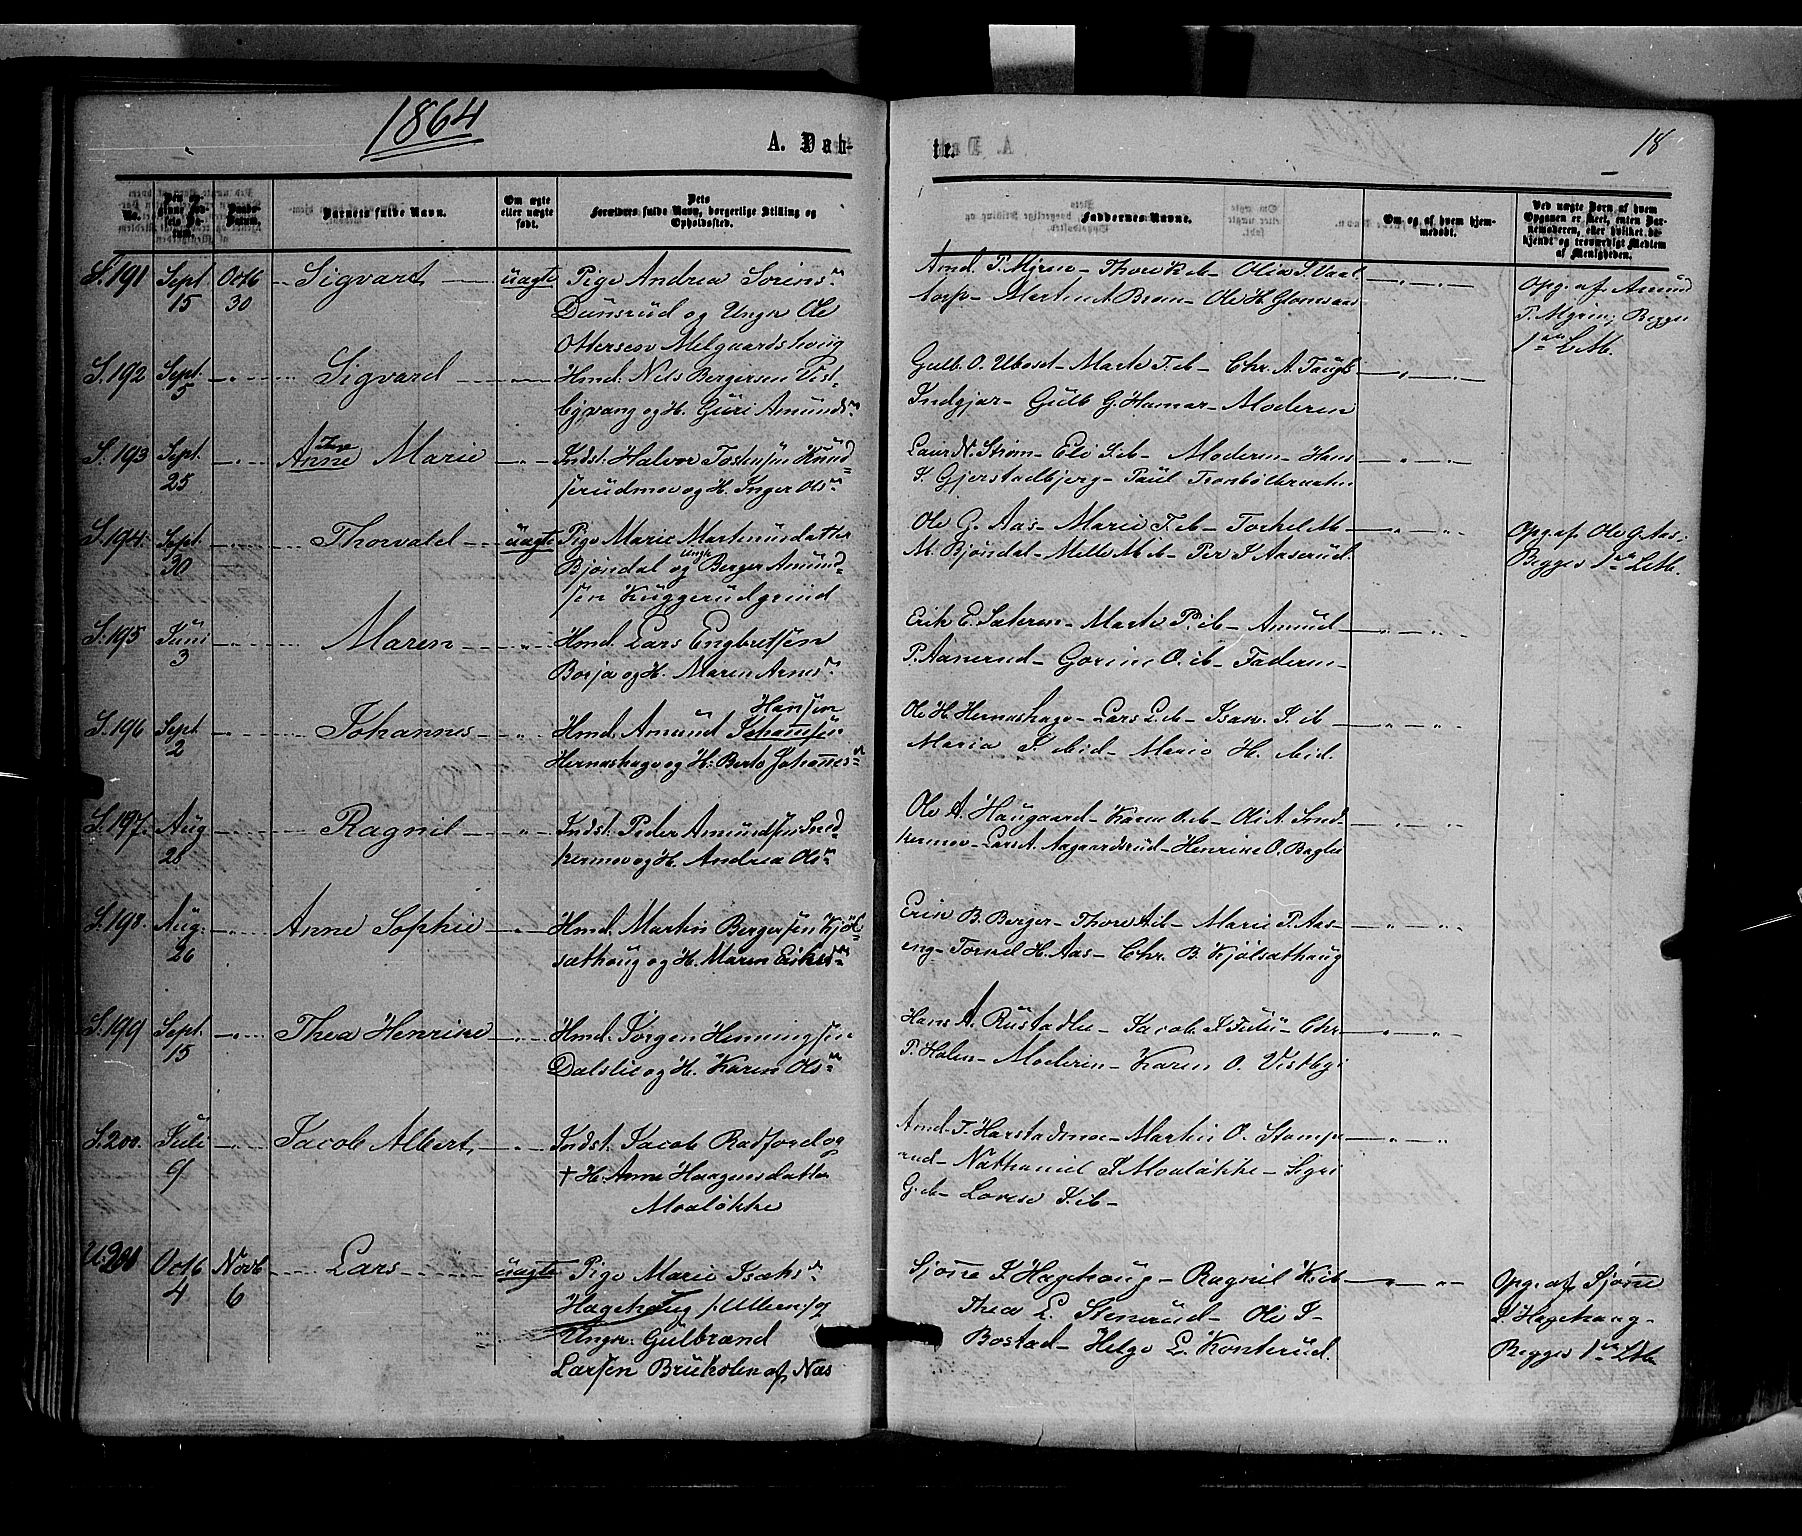 1864
A. Døb-
te.
18
No.
Barnets fulde Navn.
Om ægte
eller uægte
født.
Dets
Forældres fulde Navn, borgerlige Stilling og
Opholdssted.
Faddernes Navne.
Om og af hvem hjem-
medøbt.
Ved uægte Børn af hvem
Opgaven er skeet, enten Bar-
nemoderen, eller hvilket be-
kjendt og troværdigt Medlem
af Menigheden.
S. 191 Sept 15 Octb 30 Sigvart uægte Pige Andrea Sorens
Dunsrud og Ungk. Ole
Ottersen Melgaardshoug
Amd. T. Myren - Thore ib - Olia
torp - Martin A. Braen - Ole H.
Opg. af Amund
T. Myren; Begges
1ste Leb.
S. 192 Sept. 5 Sigvard Hmd. Nils Bergersen Vest-
byvang og H. Guri Amunds
Gulb O. Ubeset - Marte T. ib - Chr. A.
Gulb G. Hamar - Moderen
S. 193 Sept. 25 Anne Marie Indst. Halvor Tostensen Knud-
serudmov og H. Inger Ols
Laur N. Strøm - Eli S. ib - Moderen - Hans
S. Gjerstadbjerg - Paul Tronbølbraaten
S. 194. Sept. 30 Thorvald uægte Pige Marie Martinusdatter
Bjøndal og Ungk. Berger Amund-
sen Kuggerudgrind
Ole G. Aas - Marie T. ib - Torkel M
M. Bjøndal - Mette M ib - Per I Aaserud.
Opg. af Ole G Aas;
Begges 1ste Leb.
S. 195 Juni 3 Maren Hmd. Lars Engbretsen
Borja og H. Maren Arnes
Erik E. Sæteren - Marte P. ib - Amund
P. Aanerud - Gorine O. ib - Faderen
S. 196 Sept 2 Johannes Hmd. Amund Johansen
Hansen
Hernæshage og H: Berte Johannes
Ole H. Hernæshage - Lars L. ib - Isak. I. ib
Maria I. ibid - Marie H. ibid.
S. 197. Aug 28 Ragnil Indst. Peder Amundsen Sned-
kermov og H. Andrea Ols
Ole A. Haugaard - Karen O. ib - Ole A. Sned-
kermov - Lars A. Aagaardsrud - Henrike O. Bagler
S. 198. Aug. 26 Anne Sophie Hmd. Martin Bergersen Kjøl-
sæthoug og H. Maren Eriksd
Erik B. Berger - Thore A ib - Marie P. Aas-
eng - Torkel H. Aas - Chr. B. Kjølsæthaug
S. 199 Sept. 15 Thea Henrike Hmd. Jørgen Henningsen
Dalslie og H. Karen Ols
Hans A. Rustadlie - Jacob I. Juli - Chr
P. Holen - Moderen - Karen O. Vestbyi
S. 200. Juli 9 Jacob Albert Indst. Jacob Radford og
+ H. Anne Haagensdatter
Moaløkke
Amd. T. Harstadmoe - Martin O. Stomp-
rud - Nathaniel I. Moaløkke - Sigri
G. ib - Lovise I. ib -
U. 201 Octb 4 Novb 6 Lars uægte Pige Marie Isaks
Hagehaug og
Ungk. Gulbrand
Larsen Brukolen af Næs
Sjønne I Hagehaug - Ragnil K ib
Thea L. Stenerud - Ole I.
Bostad - Helge L. Konterud.
Opg. af Sjønne
I. Hagehaug -
Begges 1ste Leb